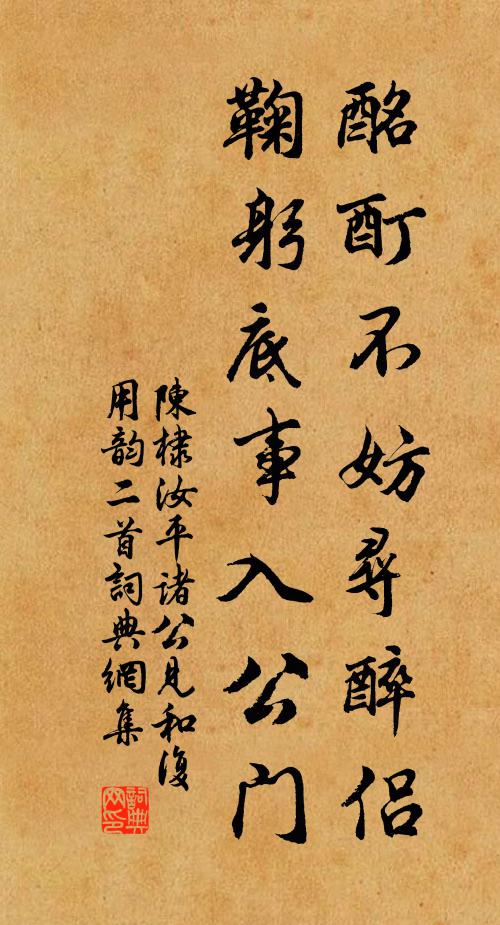 酩酊不妨尋醉侶
鞠躬底事入公门
陳棣汝平诸公見和復
用韵二首詞典網集
詞典网印